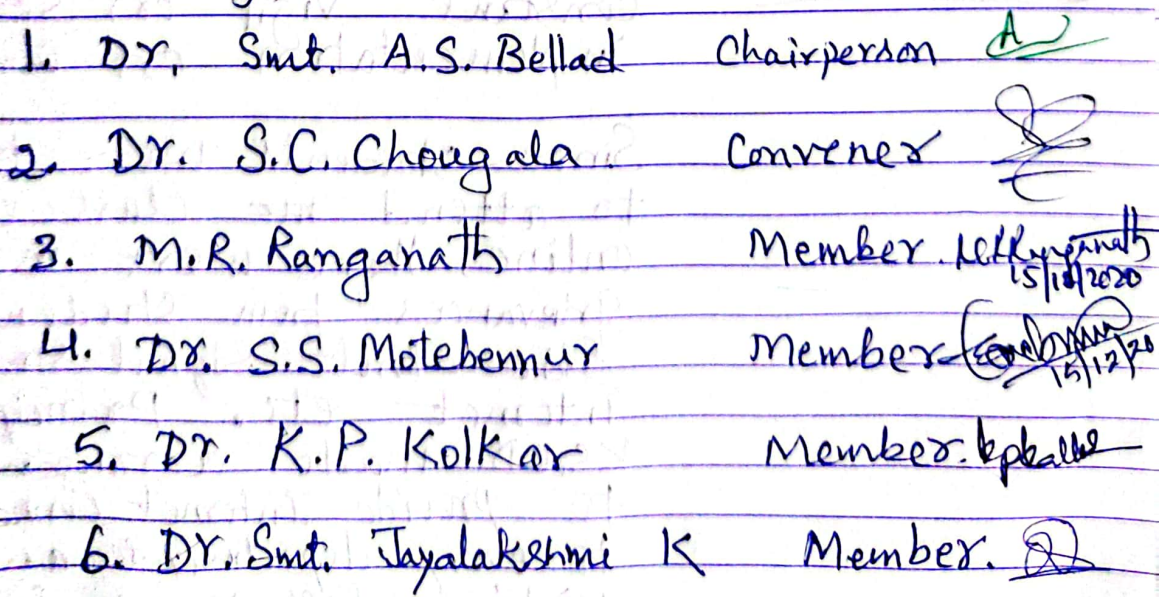 1. Dr. Smt. A.S. Bellad Chairperson
2. Dr. S.C. Chougala Convener
3. M.R. Ranganath Member.
15/12/2020
4. Dr. S.S. Motebennur Member
15/12/20
5. Dr. K.P. Kolkar Member.
6. Dr. Smt. Jayalakshmi K Member.